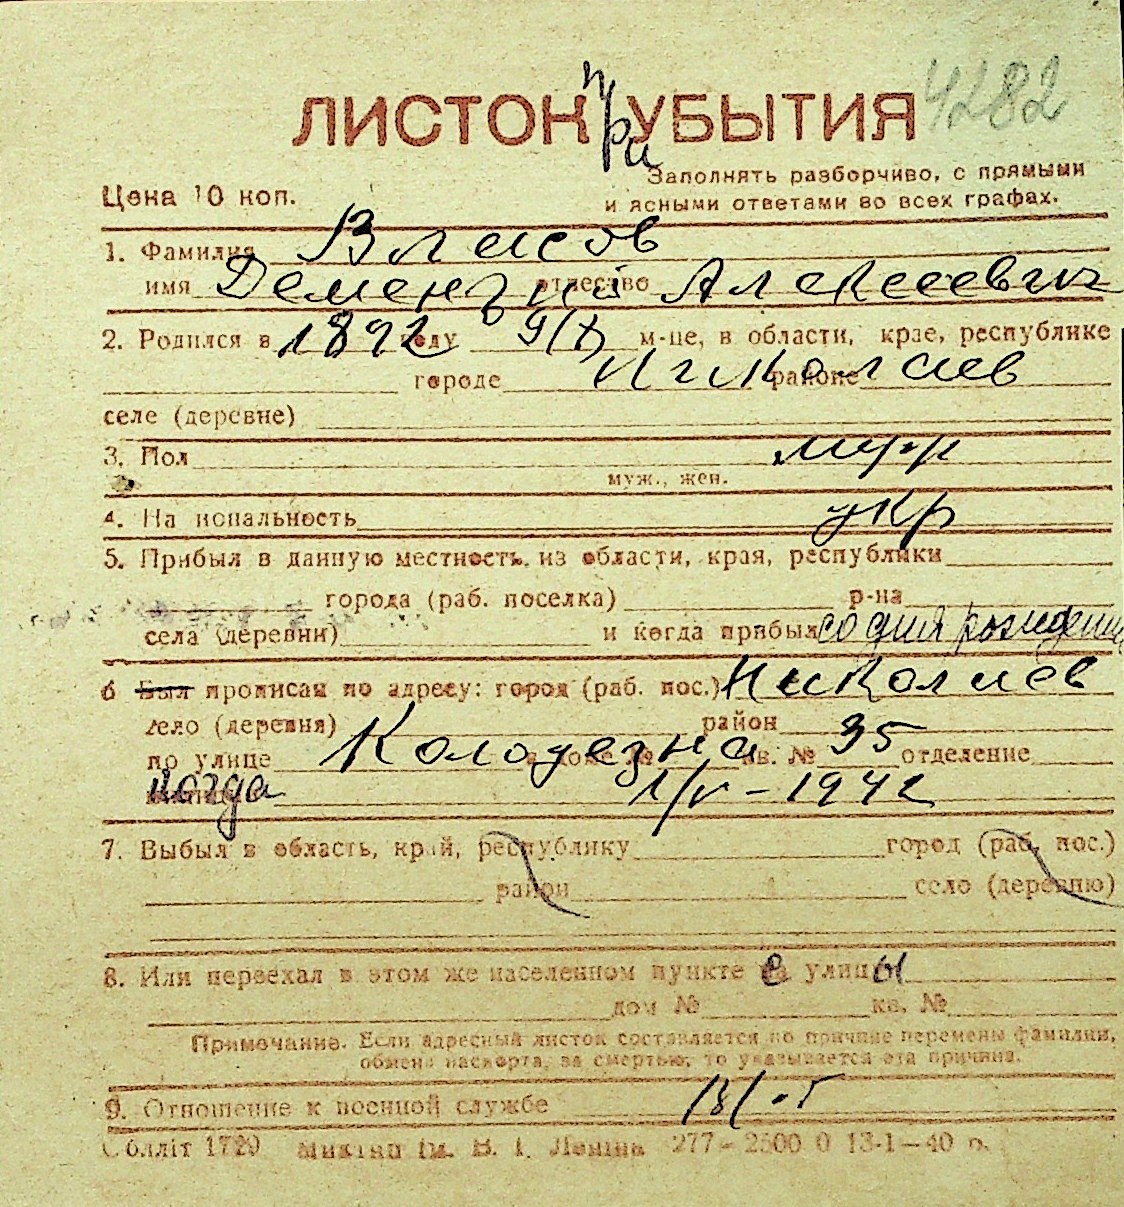 4282
ЛИСТОК при УБЫТИЯ
Цена 10 коп.
Заполнять разборчиво, с прямыми
и ясными ответами во всех графах.
1. Фамилия Власов
имя Дементий отчество Алексеевич
2. Родился в 1892 году 9/X м-це, в области, крае, республике
городе Николаев районе
селе (деревне)
3. Пол муж
муж., жен.
4. Национальность укр
5. Прибыл в данную местность из области, края, республики
города (раб. поселка) р-на
села (деревни) и когда прибыл со дня рождения
6 Был прописан по адресу: город (раб. пос.) Николаев
село (деревня) район
по улице Колодезна в доме № кв. № 35 отделение
когда 1/V-1942
7. Выбыл в область, край, республику город (раб. пос.)
район село (деревню)
8. Или переехал в этом же населенном пункте с улицы
дом № кв. №
Примечание. Если адресный листок составляется по причине перемены фамилии,
обмена паспорта, за смертью, то указывается эта причина.
9. Отношение к военной службе
Обліт 1729 им. В. І. Леніна 277 - 2500 0 13-1-40 р.